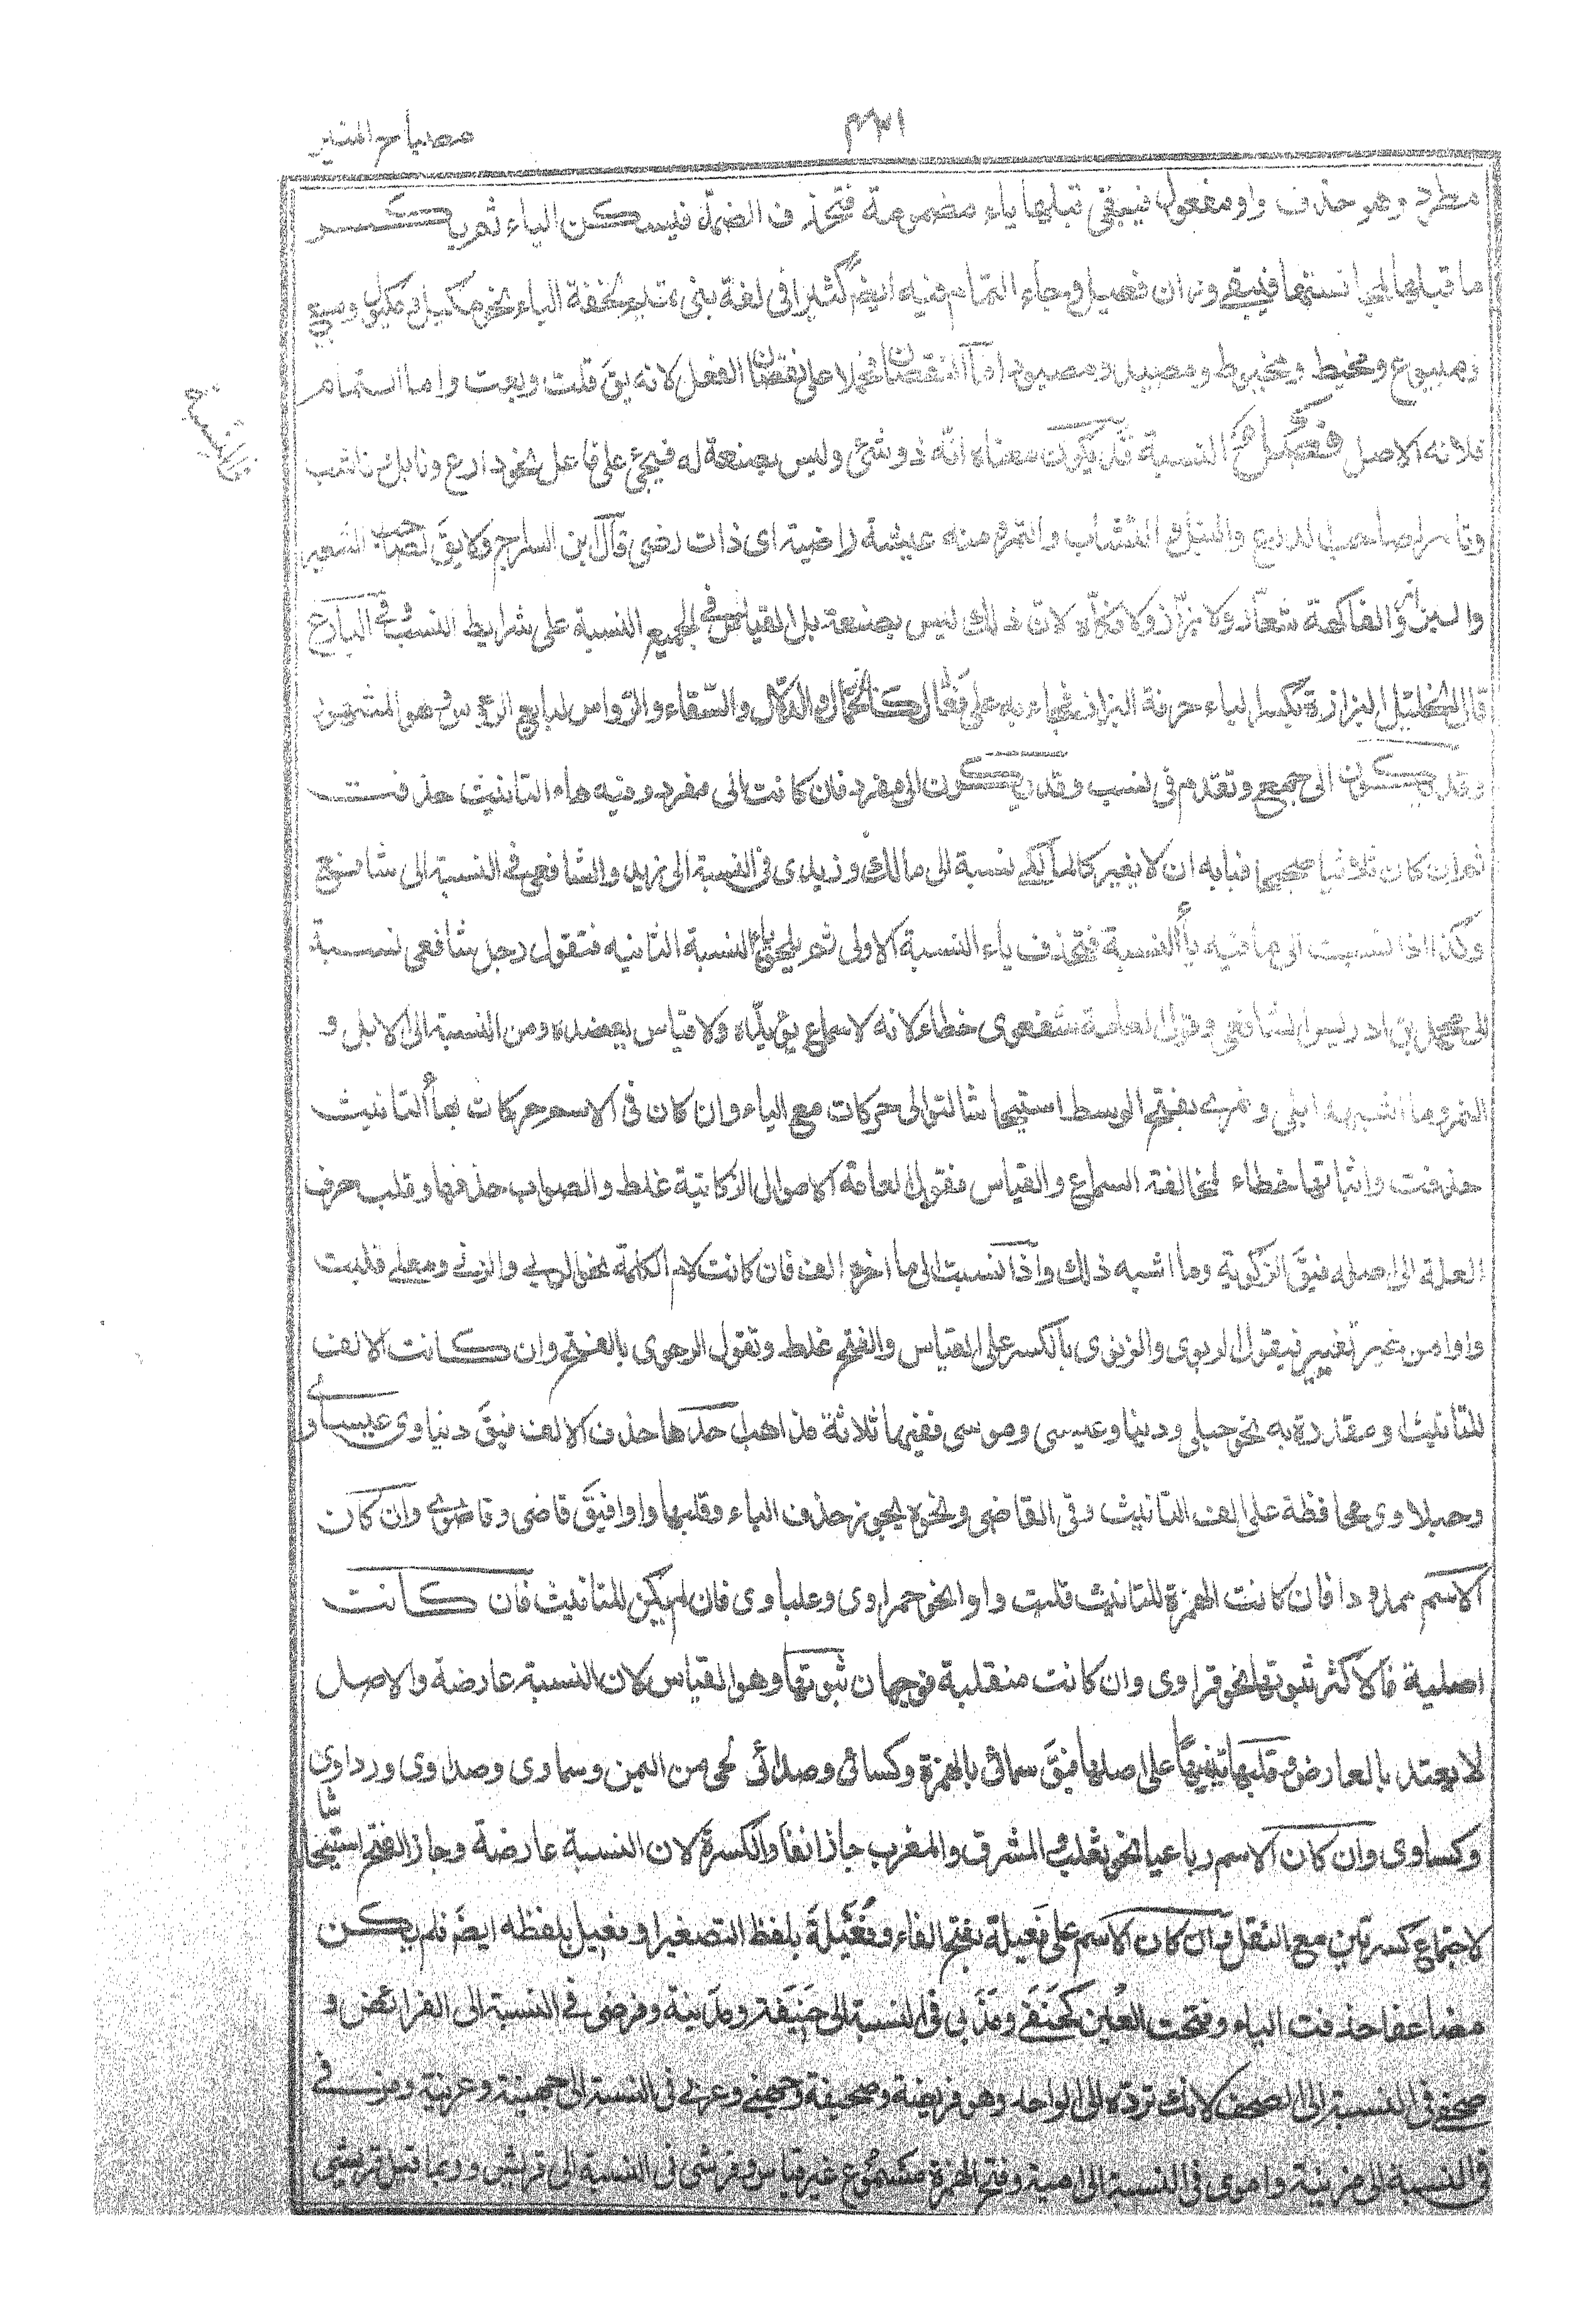 ٣٩١
مصباح المنير
في النسبة
مطرد وهو حذف واو مفعول فيبقى قبلها ياء مضمومة فتحذف الضمة فيسكن الياء ثم يكسر
ما قبلها لمجانستها فيبقى وزان فعيل وجاء التمام فيه ايضً كثيرا فى لغة بنى تميم لخفة الياء نحو مكيل ومكيول ومبيع
ومبيوع ومخيط ومخيوط ومصيد ومصيود اما النقصان فحملا على نقصان الفعل لانه يق قلت وبعت واما التمام
فلانه الاصل فصل النسبة قد يكون معناه انه ذو شئ وليس بصنعة له فيجئ على فاعل نحو دارع ونابل وناشب
وتامر لصاحب الدرع والنبل والنشاب والتمر ومنه عيشة راضية اى ذات رضى قال ابن السراج ولا يقَ لصاحب الشعير
والبر والفاكهة شعّار ولا برّار ولا فكّاه لان ذلك ليس بصنعة بل القياس فى الجميع النسبة على شرايط النسب وفى البارع
قال الخليل البزازة بكسر الباء حرفة البزاز فجاء به على فعّال كالحمّال والدلّال والسّقاء والروّاس لبايع الرءوس وهو المشهور
وقد يكون الى جمع وتقدم فى نسب وقد يكون الى مفرد فان كانت الى مفرد وفيه هاء التانيث حذفت
ثم ان كان ثلاثيا صحيحا فبابه ان لا يغير كالمالكي نسبة الى مالك وزيدى فى النسبة الى زيد والشافعى فى النسبة الى شافع
وكذا اذا نسبت الى ما فيه ياء النسبة فتحذف ياء النسبة الاولى ثم يلحق ياء النسبة الثانيه فتقول رجل شافعى نسبة
الى محمد بن ادريس الشافعى وقول العامة شفعوى خطاء لانه لا سماع يؤيدّه ولا قياس يعضده ومن النسبة الى الابل و
النمر وما اشبهه ابلى ونمرى بفتح الوسط استيحاشا لتوالى حركات مع الياء وان كان فى الاسم حركات هاء التانيث
حذفت واثباتها خطاء لمخالفة السماع والقياس فقول العامة الاموال الزكاتية غلط والصواب حذفها وقلب حرف
العلة الى اصله فيقَ الزكوية وما اشبه ذلك واذا نسبت الى ما اخره الف فان كانت لام الكلمة نحو الربى والزنى ومعلى قلبت
واوا من غير تغيير فيقول الربوى والزنوى بالكسر على القياس والفتح غلط وتقول الرحوى بالفتح وان كانت الالف
للتانيث او مقدرة به نحو حبلى ودنيا وعيسى وموسى ففيها ثلاثة مذاهب احدها حذف الالف فيقَ دنياوى عيساوى
وحبلاوى محافظة على الف التانيث وفى القاضى ونحوه يجوز حذف الياء وقلبها واوا فيقَ قاضى وقاضوى وان كان
الاسم ممدودا فان كانت الهمزة للتانيث قلبت واوا نحو حمراوى وعلباوى فان لم يكن للتانيث فان كانت
اصلية فالاكثر ثبوتها نحو قراوى وان كانت منقلبة فوجهان ثبوتها وهو القياس لان النسبة عارضة والاصل
لا يعتد بالعارض وقلبها تنبيها على اصلها فيقَ سمائى بالهمزة وكسائى وصدائى لحى من اليمن وسماوى وصداوى ورداوى
وكساوى وان كان الاسم رباعيا نحو تغلب والمشرق والمغرب جاز ابقاء الكسرة لان النسبة عارضة وجاز الفتح استيحاشا
لاجتماع كسرتين مع الثقل وان كان الاسم على فَعيلة بفتح الفاء وفُعَيلة بلفظ التصغير او فعيل بلفظه ايضً فلم يكن
مضاعفا حذفت الياء وفتحت العين كحَنَفى ومَدَنى فى النسبة الى حَنيفة ومدينة وفرضى فى النسبة الى الفرائض و
صحفى فى النسبة الى الصحف لانك تردّه الى الواحد وهو فريضة وصحيفة وجهنى وعرنى فى النسبة الى جهينة وعرينة ومزنى
فى النسبة الى مزينة واموى فى النسبة الى امية وفتح الهمزة مسموع غير قياس وقرشى فى النسبة الى قريش وربما قيل قريشى